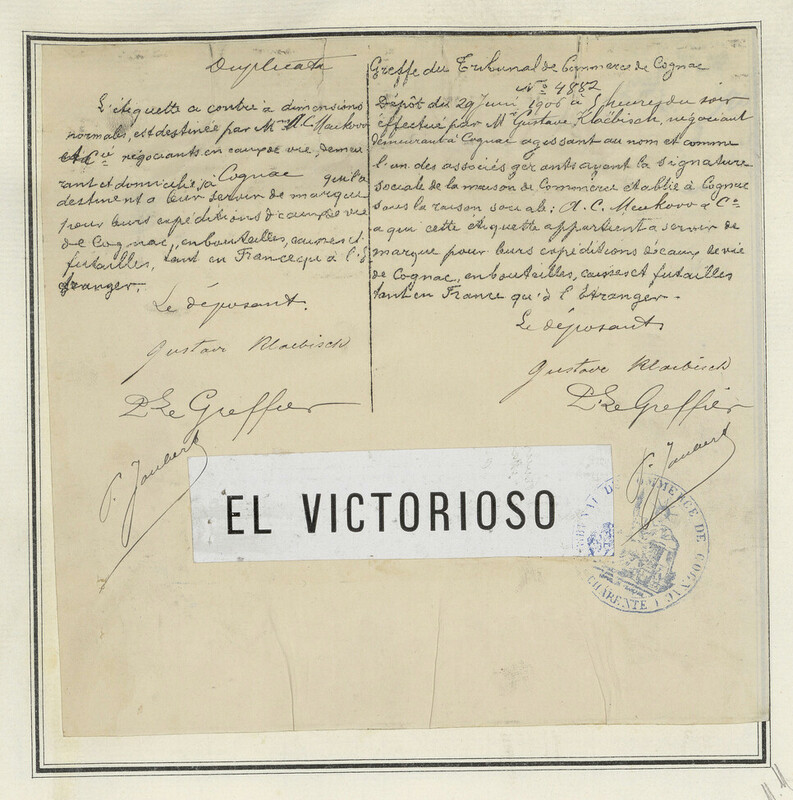 Duplicata
L'étiquette ci contre à dimensions
normales, est destinée par Mrs A. C. Meukow
et Cie négociants en eaux de vie, demeu
rant et domiciliés à Cognac qu'ils
destinent à leur servir de marque
pour leurs expéditions d'eaux de vie
de Cognac, en bouteilles, caisses et
futailles, tant en France qu'à l'É
tranger.
Le déposant.
Gustave Klaebisch
Pr Le Greffier
P. Jaubert
Greffe du Tribunal de Commerce de Cognac
No 4882
Dépôt du 29 Juin 1906 à heures du soir
effectué par Mr Gustave Klaëbisch, négociant
demeurant à Cognac agissant au nom et comme
l'un des associés gérants ayant la signature
sociale de la maison de Commerce établie à Cognac
sous la raison sociale: A. C. Meukow & Co
à qui cette étiquette appartient a servir de
marque pour leurs expéditions d'eaux de vie
de Cognac, en bouteilles, caisses et futailles
tant en France qu'à l'Etranger.
Le déposant
Gustave Klaebisch
Pr Le Greffier
P. Jaubert
EL VICTORIOSO
TRIBUNAL DE COMMERCE DE COGNAC
CHARENTE